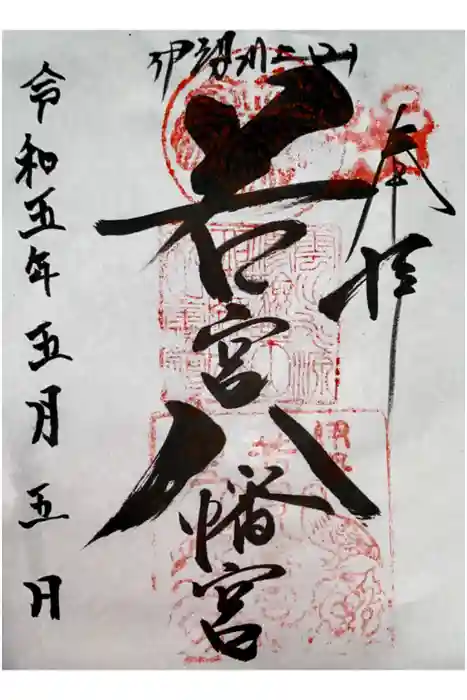 奉拝
伊勢川上山
若宮八幡宮
令和五年五月五日